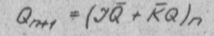 Qn+1 = (JQ̄ + K̄Q)n